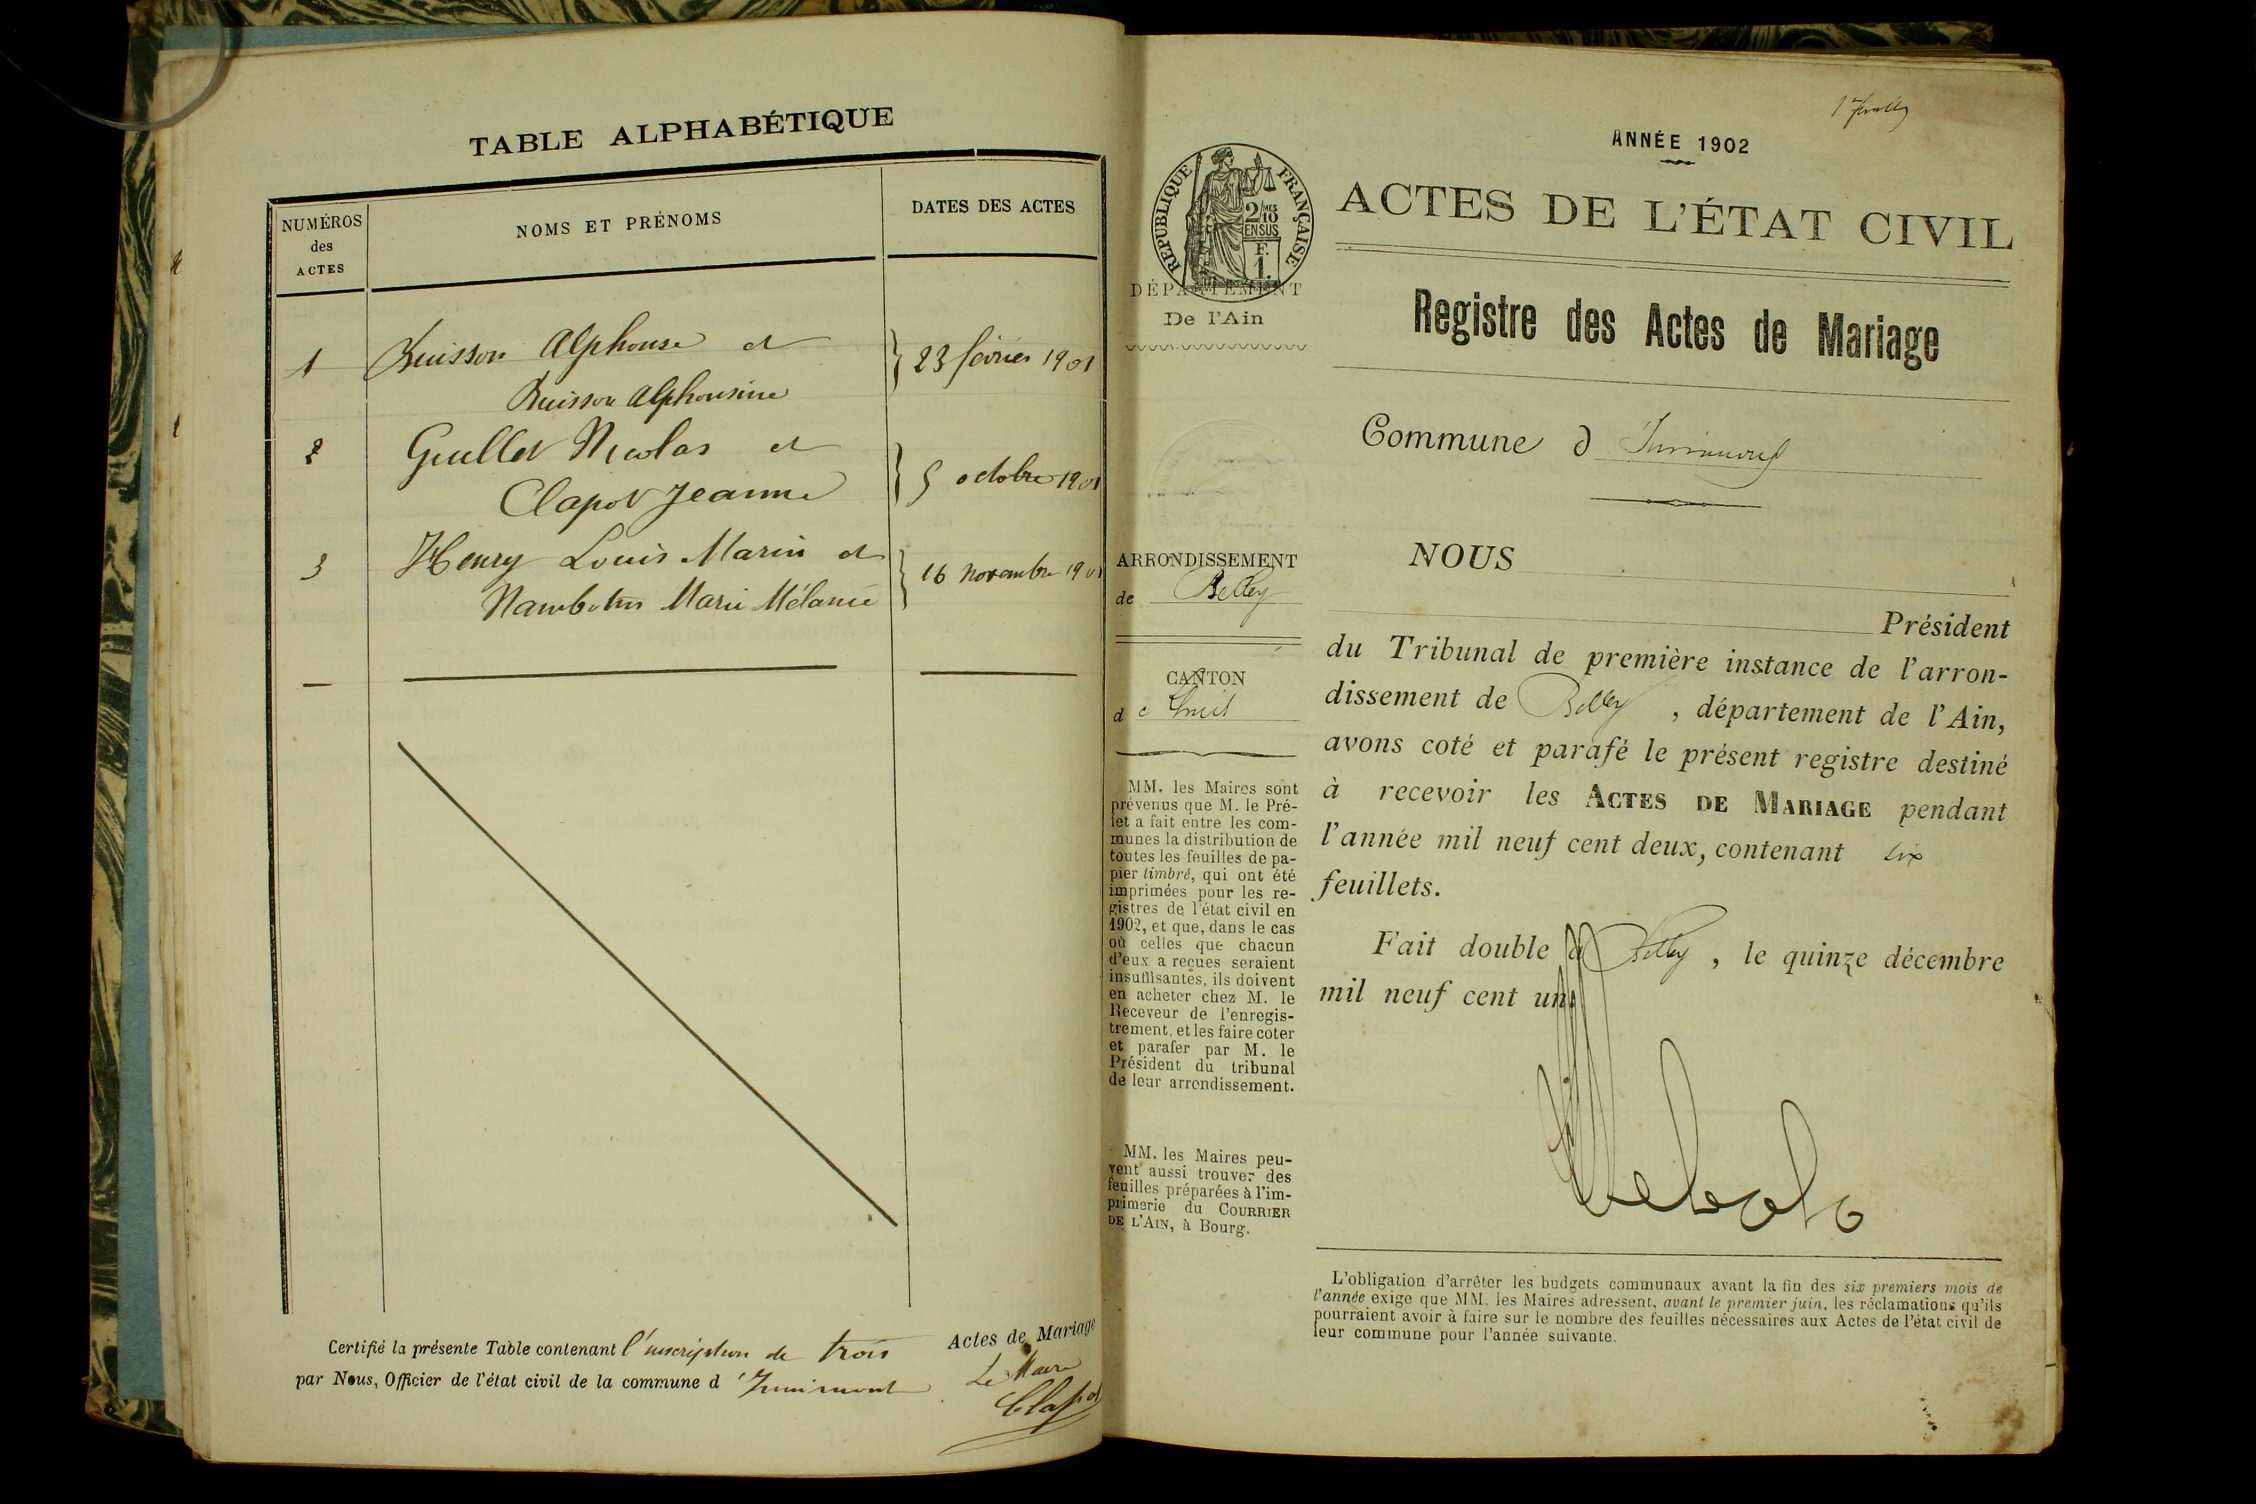 TABLE ALPHABÉTIQUE
NUMÉROS
des
ACTES
NOMS ET PRÉNOMS
DATES DES ACTES
1 Buisson Alphonse et
Buisson Alphonsine
23 février 1901
2 Guillet Nicolas et
Clapot Jeanne
5 octobre 1901
3 Henry Louis Marin et
Marie Mélanie
16 novembre 1901
Certifié la présente Table contenant l'inscription de trois Actes de Mariage
par Nous, Officier de l'état civil de la commune d'Innimont
Le Maire
Clapot
1er feuillet
ANNÉE 1902
RÉPUBLIQUE FRANÇAISE
2/10 MES
EN SUS
F.
1.
ACTES DE L'ÉTAT CIVIL
DÉPARTEMENT
De l'Ain
Registre des Actes de Mariage
Commune d'Innimont
ARRONDISSEMENT
de Belley
CANTON
de Lhuis
MM. les Maires sont
prévenus que M. le Pré-
fet a fait entre les com-
munes la distribution de
toutes les feuilles de pa-
pier timbré, qui ont été
imprimées pour les re-
gistres de l'état civil en
1902, et que, dans le cas
où celles que chacun
d'eux a reçues seraient
insuffisantes, ils doivent
en acheter chez M. le
Receveur de l'enregis-
trement, et les faire coter
et parafer par M. le
Président du tribunal
de leur arrondissement.
MM. les Maires peu-
vent aussi trouver des
feuilles préparées à l'im-
primerie du COURRIER
DE L'AIN, à Bourg.
NOUS
Président
du Tribunal de première instance de l'arron-
dissement de Belley, département de l'Ain,
avons coté et parafé le présent registre destiné
à recevoir les ACTES DE MARIAGE pendant
l'année mil neuf cent deux, contenant six
feuillets.
Fait double à Belley, le quinze décembre
mil neuf cent un.
L'obligation d'arrêter les budgets communaux avant la fin des six premiers mois de
l'année exige que MM. les Maires adressent, avant le premier juin, les réclamations qu'ils
pourraient avoir à faire sur le nombre des feuilles nécessaires aux Actes de l'état civil de
leur commune pour l'année suivante.